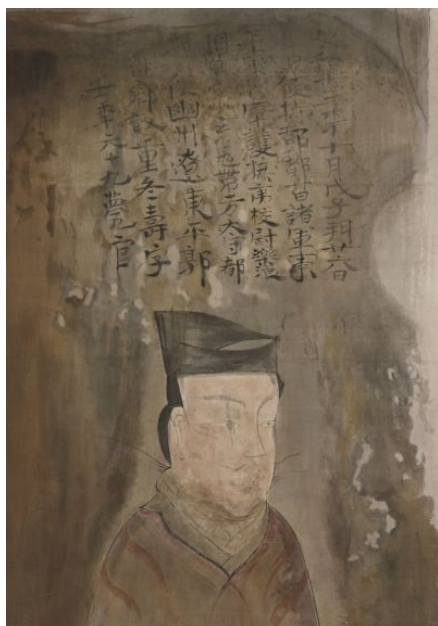 年十月戊子朔廿日
使持節都督諸軍事
軍護撫夷校尉樂浪
相昌玄菟帶方太守都
幽州遼東平郭
鄉敬里冬壽字
安年六十九薨官